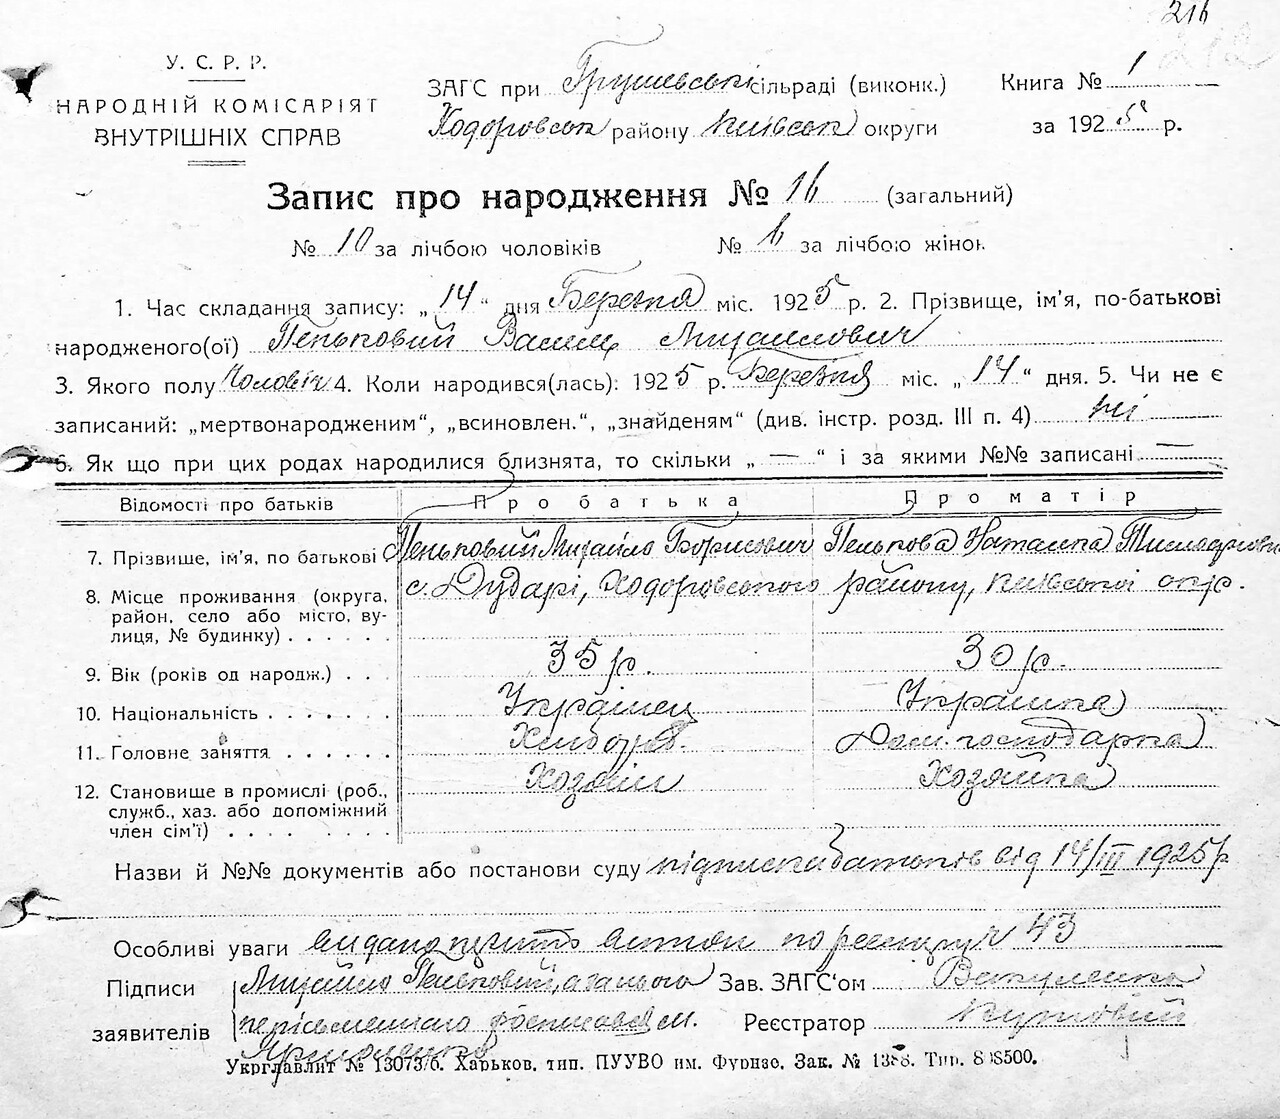 216
У. С. Р. Р.
НАРОДНІЙ КОМІСАРІЯТ
ВНУТРІШНІХ СПРАВ
ЗАГС при Грушевській сільраді (виконк.)
Ходоровськ району Київськ округи
Книга № 1
за 1925 р.
Запис про народження № 16 (загальний)
№ 10 за лічбою чоловіків № 6 за лічбою жінок
1. Час складання запису: „14“ дня Березня міс. 1925 р. 2. Прізвище, ім’я, по-батькові
народженого(ої) Пеньковий Василь Михайлович
3. Якого полу Чоловіч 4. Коли народився(лась): 1925 р. Березня міс. „14“ дня. 5. Чи не є
записаний: „мертвонародженим“, „всиновлен.“, „знайденям“ (див. інстр. розд. III п. 4) ні
6. Як що при цих родах народилися близнята, то скільки „ — “ і за якими №№ записані —
Відомості про батьків Про батька Про матір
7. Прізвище, ім’я, по батькові Пеньковий Михайло Борисович Пенькова Наталка
8. Місце проживання (округа, район, село або місто, вулиця, № будинку) с. Дударі, Ходоровського району, Київської окр.
9. Вік (років од народж.) 35 р. 30 р.
10. Національність Українец Українка
11. Головне заняття Хлібороб. Дом. господарка
12. Становище в промислі (роб., служб., хаз. або допоміжний член сім’ї) Хозяїн Хозяйка
Назви й №№ документів або постанови суду підписка батьків від 14/III 1925 р
Особливі уваги видано витяг по реєстру № 43
Підписи заявителів Михайло Пеньковий, а за нього
неписьменного росписався
Зав. ЗАГС‘ом Ватуленко
Реєстратор
Укрглавліт № 13073/б. Харьков, тип. ПУУВО им. Фрунзе. Зак. № 1388. Тир. 808500.